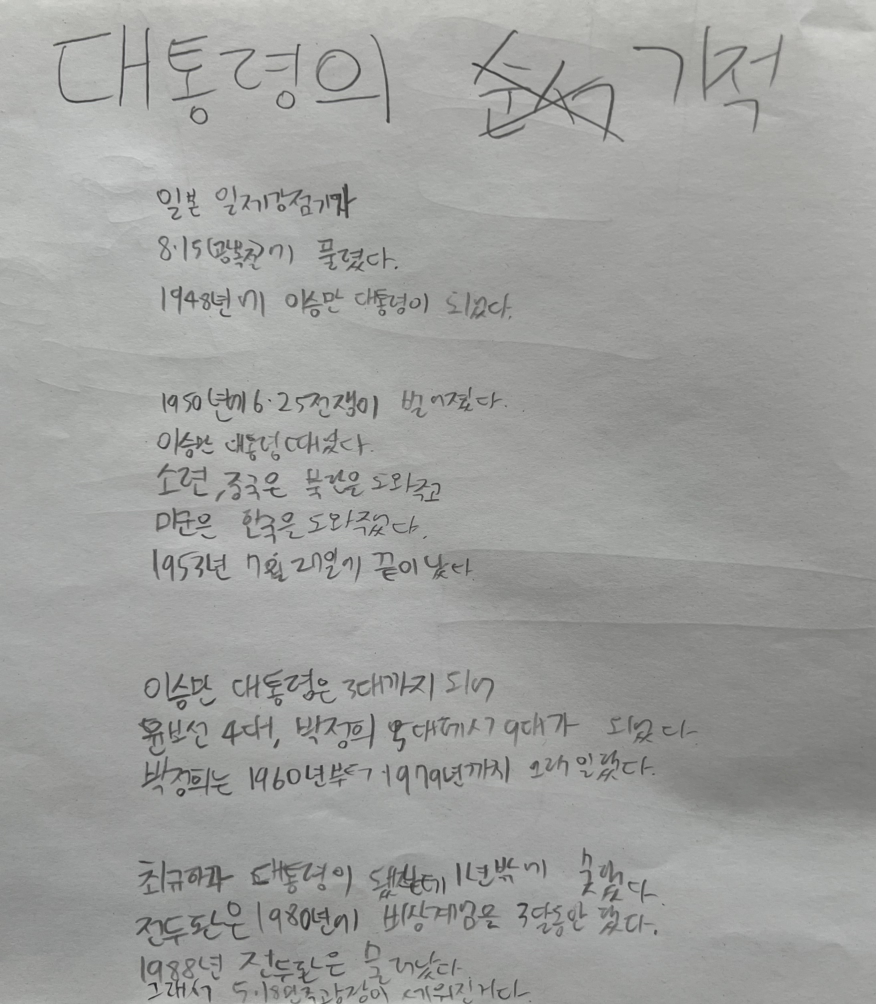 대통령의 기적
일본 일제강점기가
8.15(광복절)에 풀렸다.
1948년에 이승만 대통령이 되었다.
1950년에 6.25전쟁이 벌어졌다.
이승만 대통령때였다.
소련, 중국은 북한을 도와주고
미군은 한국을 도와줬다.
1953년 7월 27일에 끝이 났다
이승만 대통령은 3대까지 되어
윤보선 4대, 박정희 5대에서 9대가 되었다.
박정희는 1960년부터 1979년까지 오래 일했다.
최규하가 대통령이 됐는데 1년밖에 못했다.
전두환은 1980년에 비상계엄을 3달동안 했다.
1988년 전두환은 물러났다.
그래서 5.18민주광장이 세워진거다.